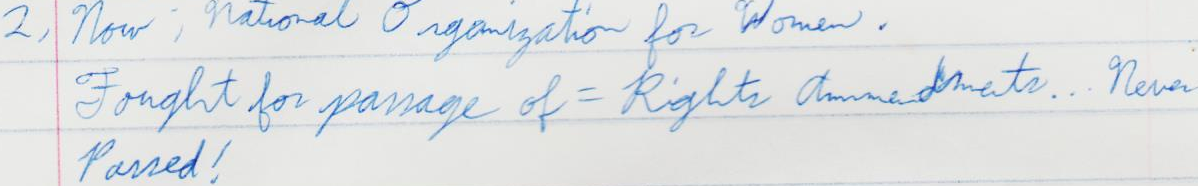 2, Now ; National Organization for Women.
Fought for passage of = Rights Ammendments... Never
Passed!